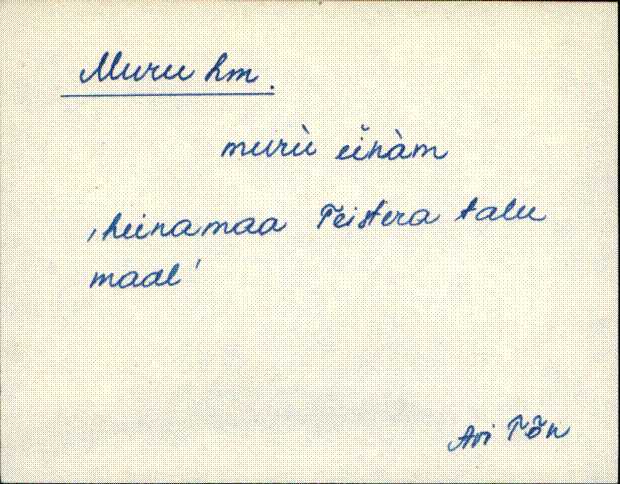 Muru hm.
murù eĭnàm
‚heinamaa Teistera talu
maal'
Ari Tõn